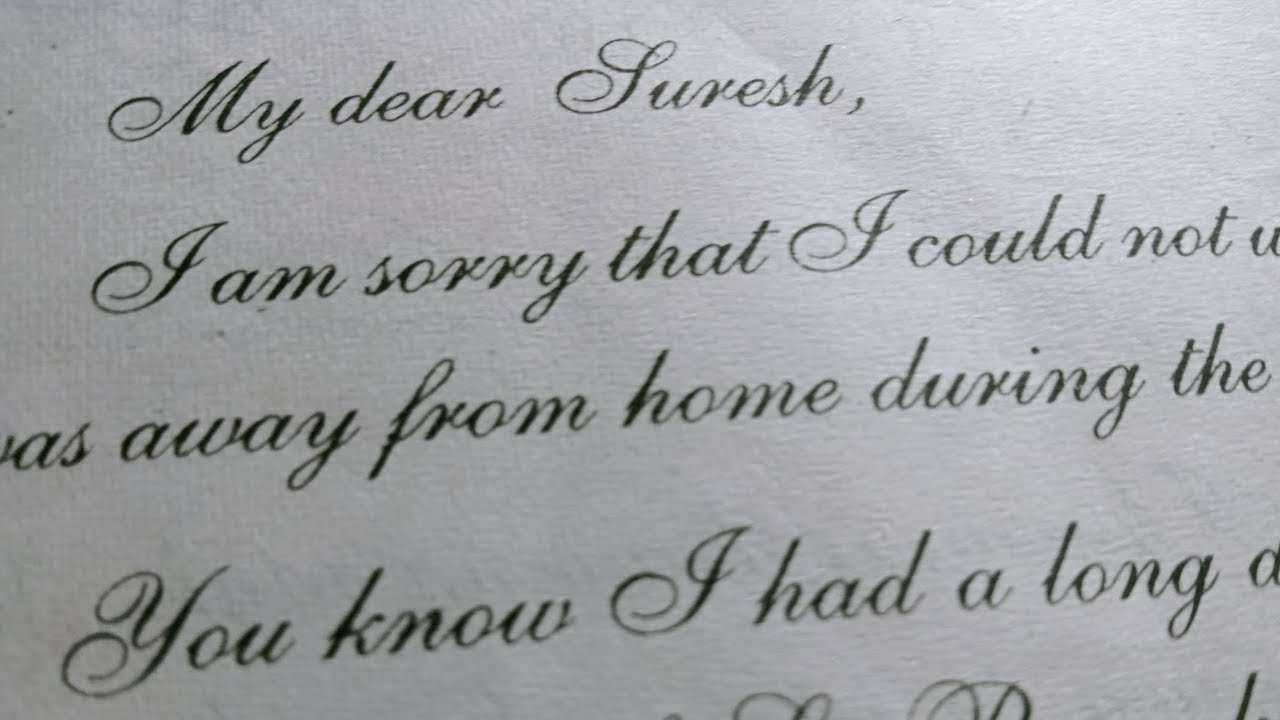 My dear Suresh,
I am sorry that I could not
was away from home during the
You know I had a long